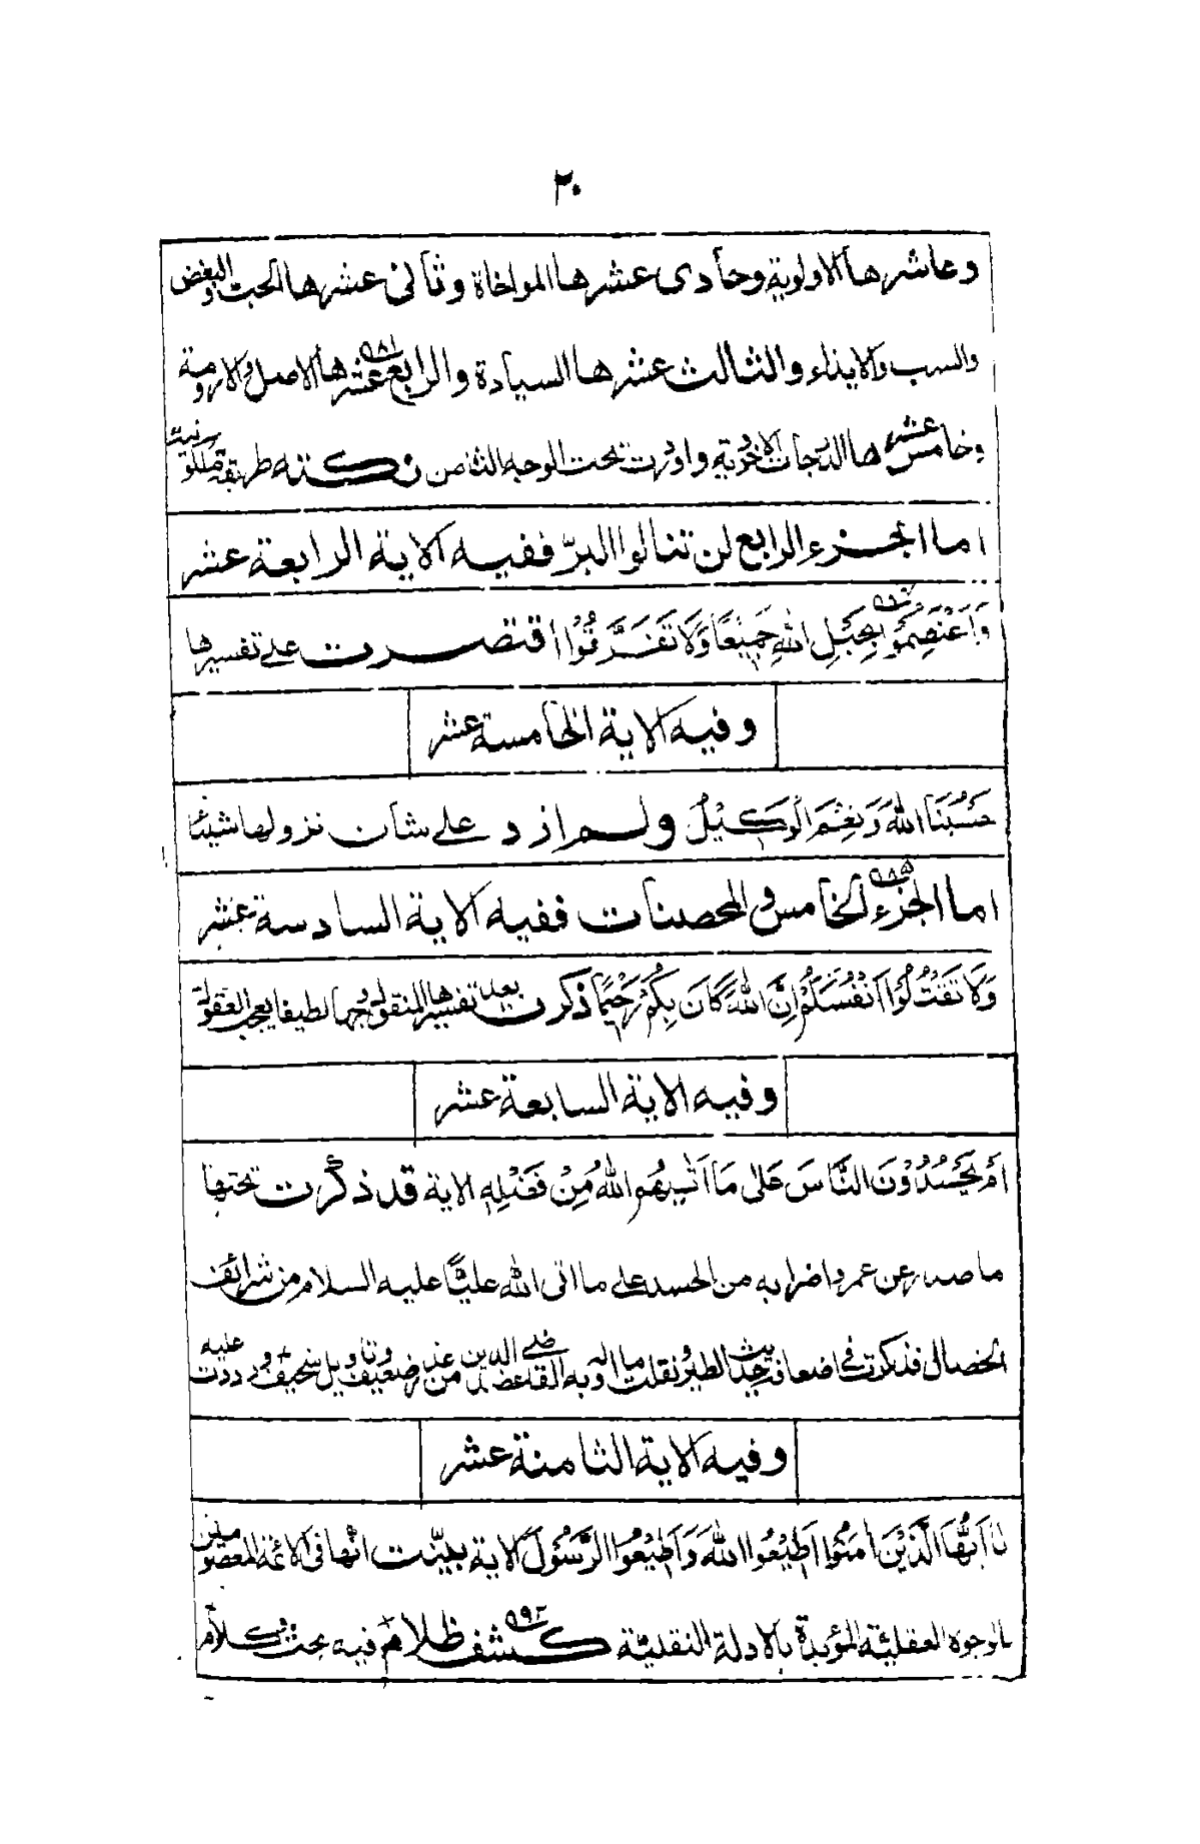 ٢٠
وعاشرها الاولوية وحادى عشرها المواخاة وثانى عشرها الحب والبغض
والسب والايذاء والثالث عشرها السيادة والرابع عشرها الاصل والارومة
وخامس عشرها الدرجات الاخروية واوردت تحت الوجه الثامن نكتة طريفة
اما الجزء الرابع لن تنالوا البرّ ففيه الاية الرابعة عشر
وَاعْتَصِمُوْا بِحَبْلِ اللهِ جَمِيْعًا وَلَا تَفَرَّقُوْا اقتصرت على تفسيرها
وفيه الاية الخامسة عشر
حَسْبُنَا اللهُ وَنِعْمَ الْوَكِيْلُ ولم ازد على شان نزولها شيئا
٥٨٥
اما الجزء الخامس والمحصنات ففيه الاية السادسة عشر
وَلَا تَقْتُلُوْا اَنْفُسَكُمْ اِنَّ اللهَ كَانَ بِكُمْ رَحِيْمًا ذكرت بعد تفسيرها المنقول وجها لطيفا يعجب العقول
وفيه الاية السابعة عشر
اَمْ يَحْسُدُوْنَ النَّاسَ عَلٰى مَا اٰتٰىهُمُ اللهُ مِنْ فَضْلِهٖ الاية قد ذكرت تحتها
ما صدر عن عمر واضرابه من الحسد على ما اتى الله عليًّا عليه السلام من شرائف
الخصال فذكرت فى اضعافه حديث الطير ونقلت ما اليه القاضى من عذر ضعيف وتاويل سخيف ورددت عليه
وفيه الاية الثامنة عشر
يٰا اَيُّهَا الَّذِيْنَ اٰمَنُوْا اَطِيْعُوا اللهَ وَاَطِيْعُوا الرَّسُوْلَ الاية بيّنت انّها فى الائمة المعصومين
بالوجوه العقليّة المؤيدة بالادلة النقليّة كشف ظلام فيه بحث وكلام